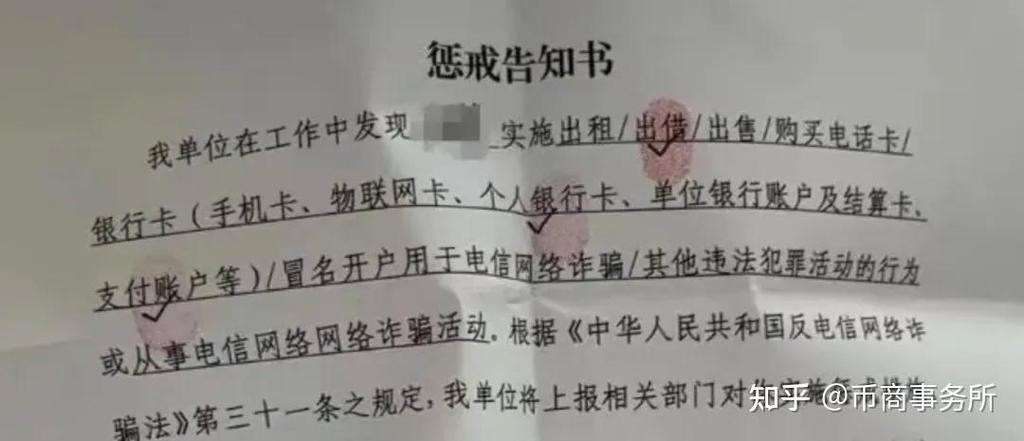 惩戒告知书
我单位在工作中发现 实施出租/出借/出售/购买电话卡/
银行卡（手机卡、物联网卡、个人银行卡、单位银行账户及结算卡、
支付账户等）/冒名开户用于电信网络诈骗/其他违法犯罪活动的行为
或从事电信网络网络诈骗活动。根据《中华人民共和国反电信网络诈
骗法》第三十一条之规定，我单位将上报相关部门对
知乎 @币商事务所